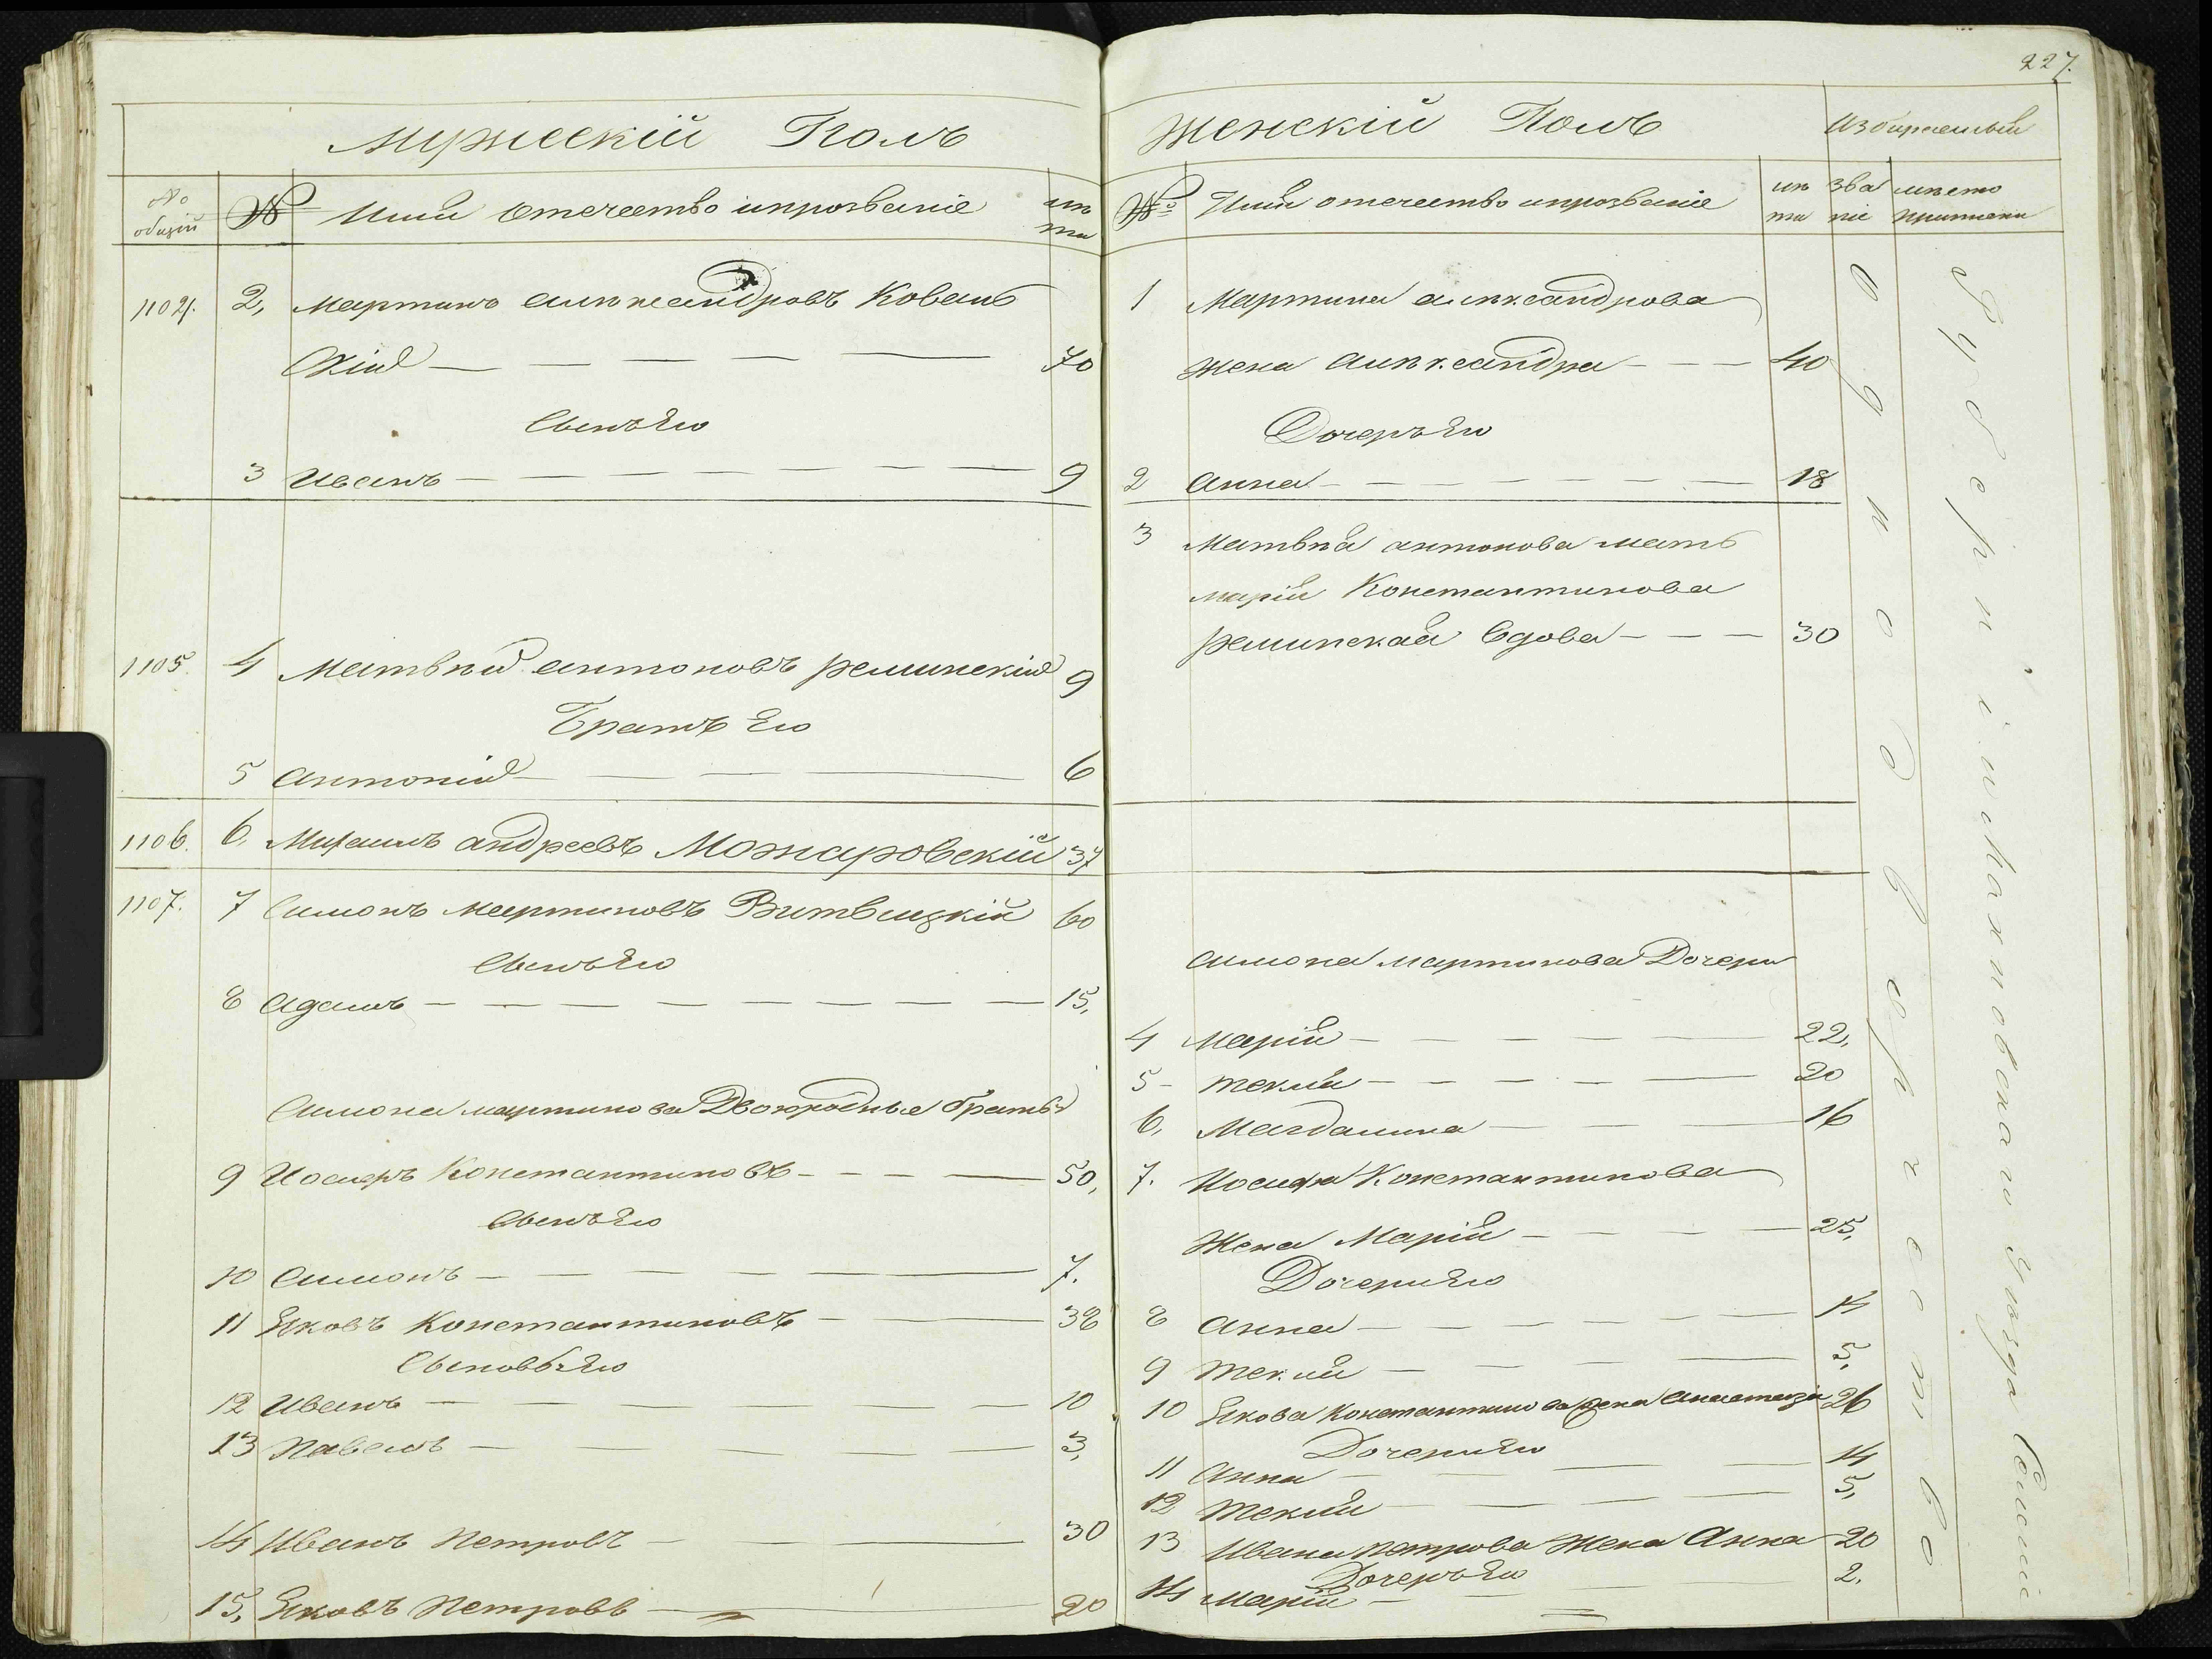 Мужескій Полъ
№ общій
№
Имя отечество ипрозваніе
лѣта
1104.
2, Мартинъ александровъ Коваль
скій 70
Сынъ Его
3 Иванъ 9
1105 4 Матвѣй антоновъ реминскій 9
Братъ Его
5 Антоній 6
1106. 6. Михаилъ андреевъ Можаровскій 37
1107. 7 Симонъ мартиновъ Витвицкій 60
Сынъ Его
8 Адамъ 15,
Симона мартинова Двоюродные братья
9 Иосифъ Константиновъ 50,
Сынъ Его
10 Симонъ 7.
11 Яковъ Константиновъ 38
Сыновья Его
12 Иванъ 10
13 Павелъ 3,
14 Иванъ Петровъ 30
15, Яковъ Петровъ 20
227.
Женскій Полъ
Избираемый
№
Имя отечество ипрозваніе
лѣта
званіе
мѣсто приписки
1 Мартина александрова
жена александра 40
Дочерь Его
2 Анна 18
3 Матвѣя антонова мать
марія Константинова
реминская вдова 30
Симона мартинова Дочери
4 Марія 22,
5 Текля 20
6, Магдалина 16
7. Иосифа Константинова
Жена Марія 25,
Дочери Его
8 Анна 14
9 Текля 5,
10 Якова Константинова жена Анастазія 26
Дочери Его
11 Анна 14
12 Текля 5,
13 Ивана петрова Жена Анна 20
Дочерь Его
14 Марія 2.
Однодворчество
Губерніи махновскаго уѣзда